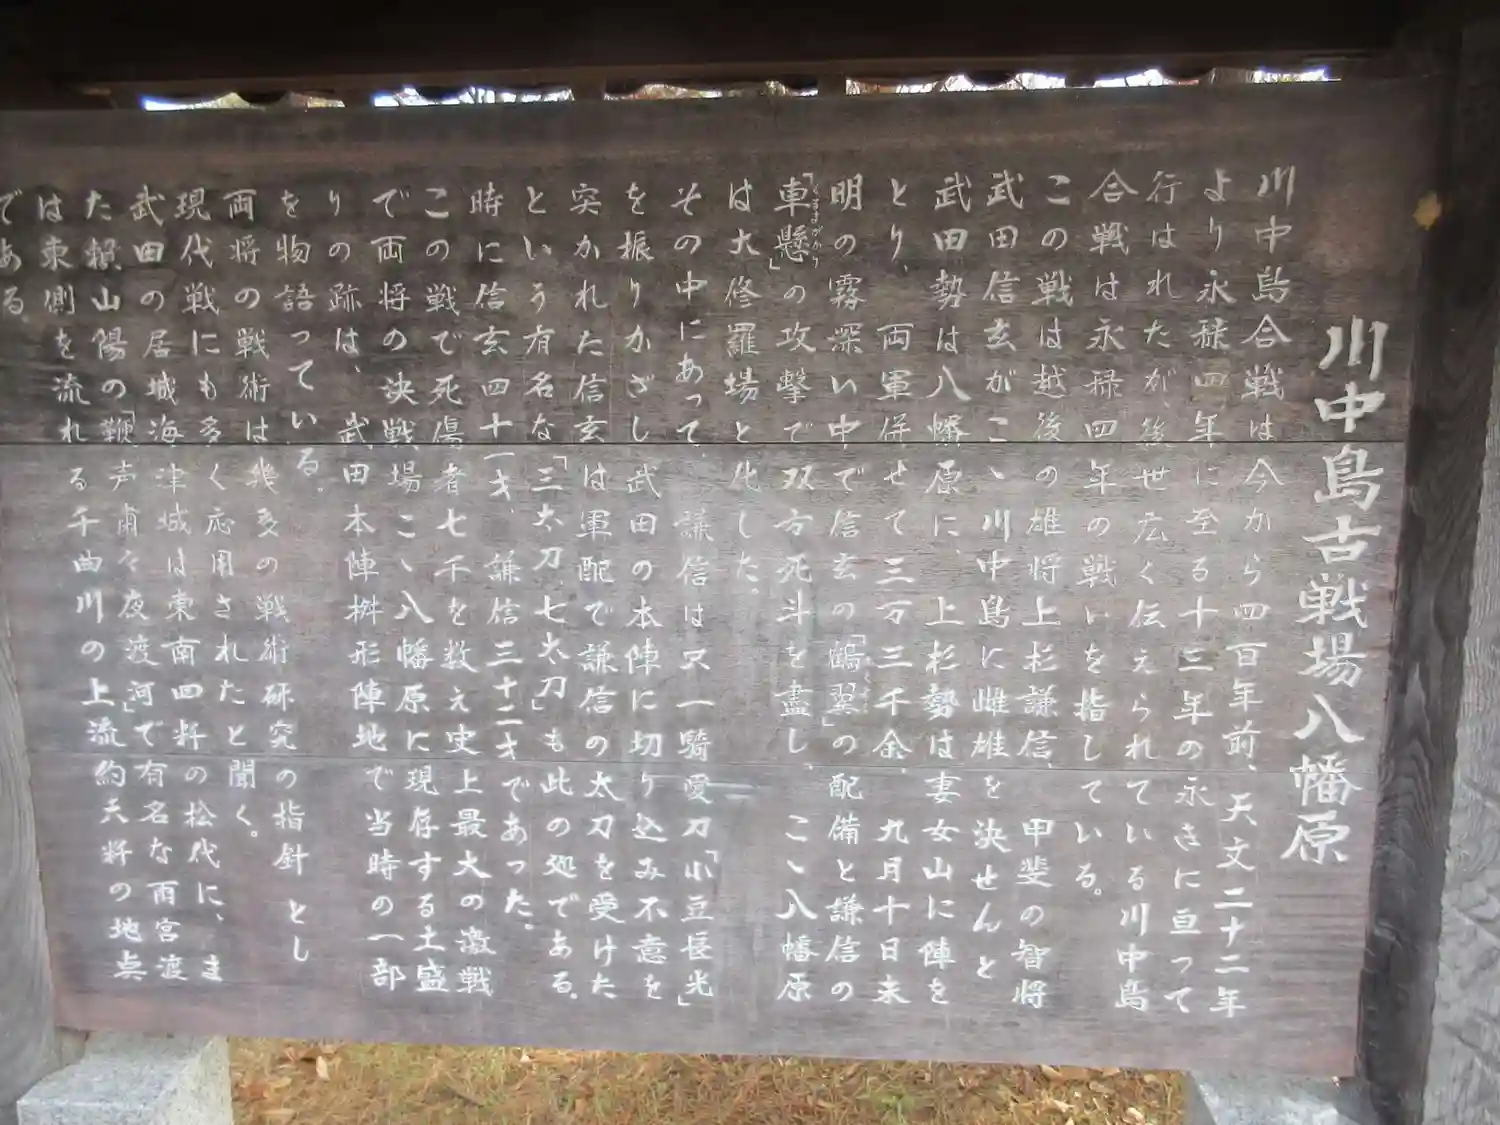 川中島古戦場八幡原
川中島合戦は今から四百年前、天文二十二年
より永禄四年に至る十三年の永きに亘って
行はれたが、後世広く伝えられている川中島
合戦は永禄四年の戦いを指している。
この戦は越後の雄将上杉謙信、甲斐の智将
武田信玄がこゝ川中島に雌雄を決せんと
武田勢は八幡原に、上杉勢は妻女山に陣を
とり、両軍併せて三万三千余、九月十日未
明の霧深い中で信玄の「鶴翼」の配備と謙信の
「車懸」の攻撃で双方死斗を盡し、こゝ八幡原
くるまがかり
は大修羅場と化した。
その中にあって、謙信は只一騎愛刀「小豆長光」
を振りかざし武田の本陣に切り込み不意を
突かれた信玄は軍配で謙信の太刀を受けた
という有名な「三太刀七太刀」も此の処である。
時に信玄四十一才、謙信三十二才であった。
この戦で死傷者七千を数え史上最大の激戦
で両将の決戦場こゝ八幡原に現存する土盛
りの跡は、武田本陣桝形陣地で当時の一部
を物語っている。
両将の戦術は幾多の戦術研究の指針とし
現代戦にも多く応用されたと聞く。
武田の居城海津城は東南四粁の松代に、ま
た頼山陽の「鞭声粛々夜渡河」で有名な雨宮渡
は東側を流れる千曲川の上流約六粁の地点
である。